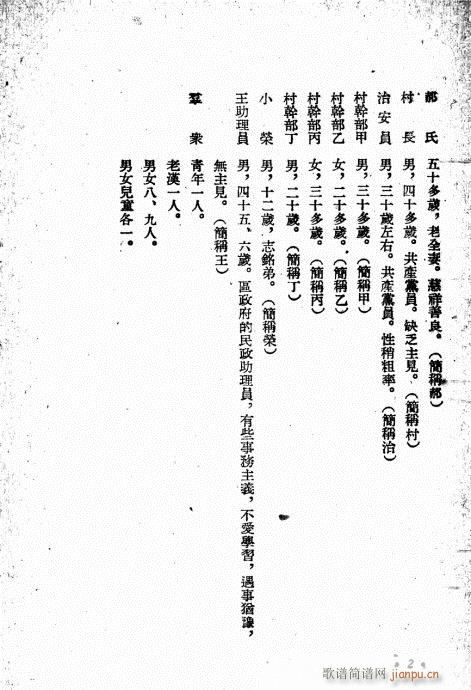 郝　氏　五十多歲，老全妻。慈祥善良。（簡稱郝）
村　長　男，四十多歲。共產黨員。缺乏主見。（簡稱村）
治安員　男，三十歲左右。共產黨員。性稍粗率。（簡稱治）
村幹部甲　男，三十多歲。（簡稱甲）
村幹部乙　女，二十多歲。（簡稱乙）
村幹部丙　女，三十多歲。（簡稱丙）
村幹部丁　男，二十歲。（簡稱丁）
小　榮　男，十二歲，志銘弟。（簡稱榮）
王助理員　男，四十五、六歲。區政府的民政助理員，有些事務主義，不愛學習，遇事猶豫，
無主見。（簡稱王）
羣　衆　青年一人。
老漢一人。
男女八、九人。
男女兒童各一。
2
歌谱简谱网
jianpu.cn